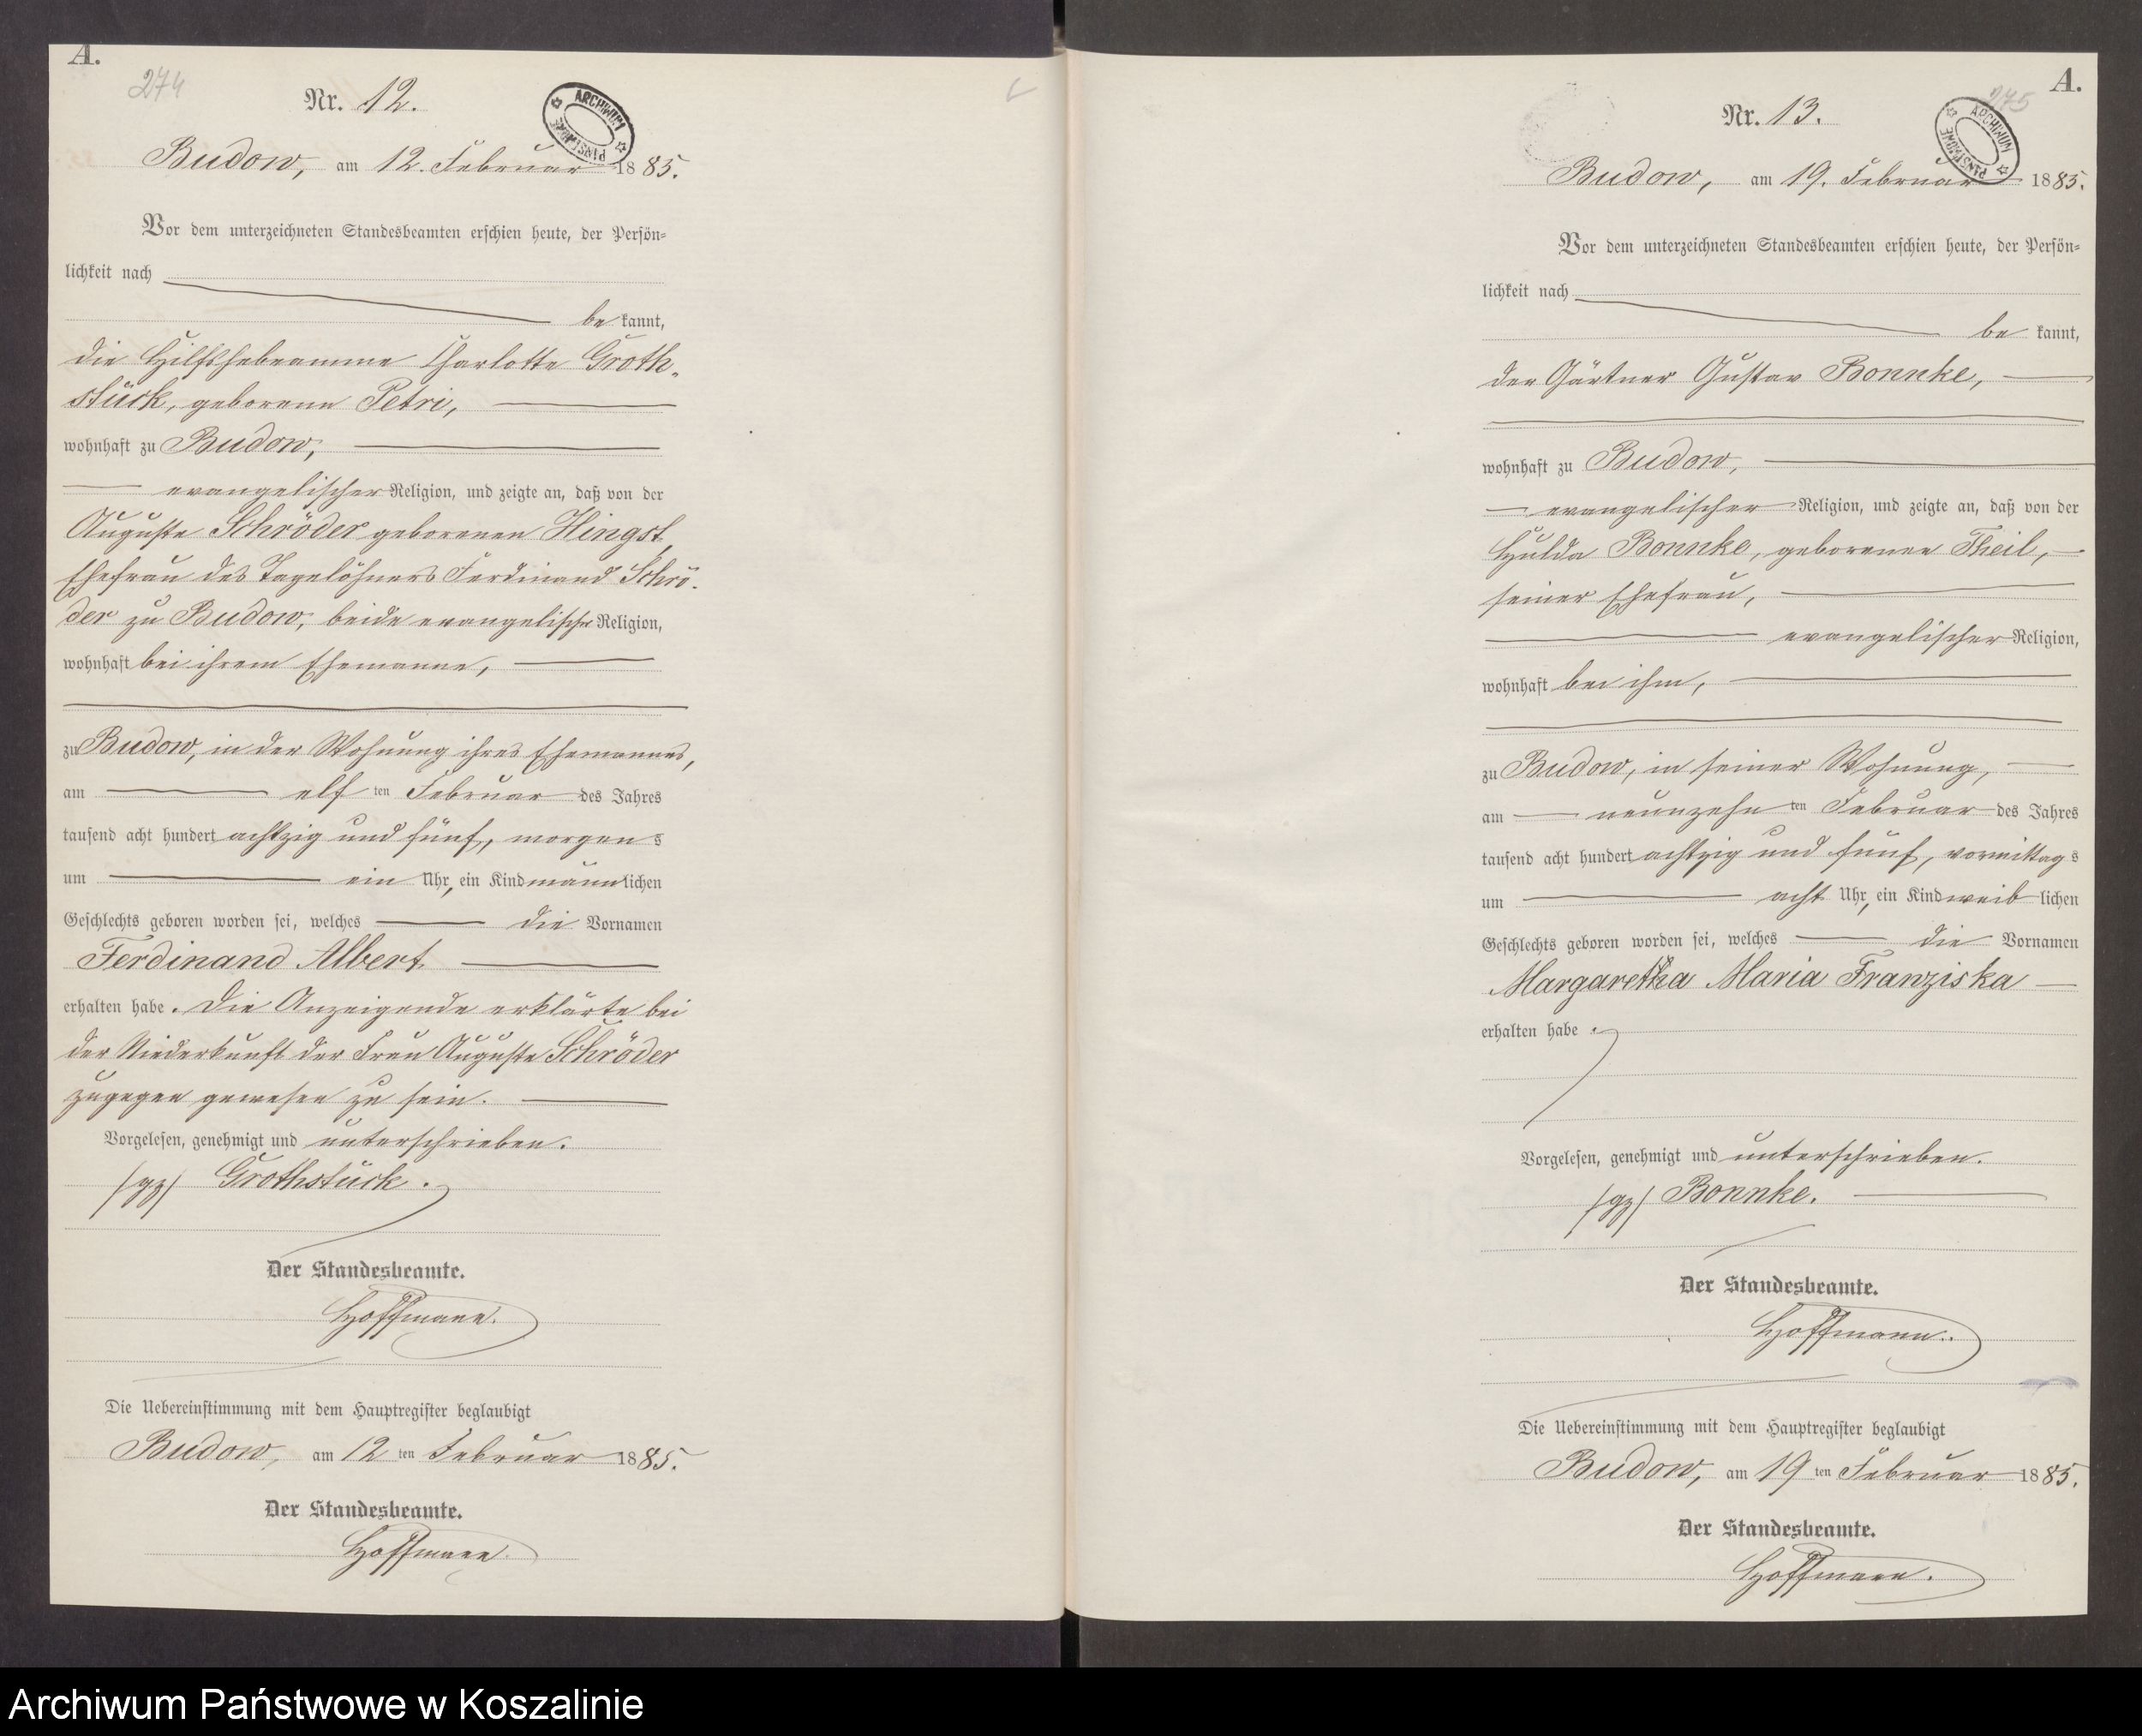 A.
274
Nr. 12.
ARCHIWUM PAŃSTWOWE
Budow, am 12. Februar 1885.
Vor dem unterzeichneten Standesbeamten erschien heute, der Persön-
lichkeit nach
be kannt,
die Hilfshebeamme Charlotte Groth-
stück, geborene Petri,
wohnhaft zu Budow,
evangelischer Religion, und zeigte an, daß von der
Auguste Schröder geborenen Hingst,
Ehefrau des Tagelöhners Ferdinand Schrö-
der zu Budow, beide evangelischer Religion,
wohnhaft bei ihrem Ehemanne,
zu Budow, in der Wohnung ihres Ehemannes,
am elf ten Februar des Jahres
tausend acht hundert achtzig und fünf, morgens
um ein Uhr, ein Kind männlichen
Geschlechts geboren worden sei, welches die Vornamen
Ferdinand Albert
erhalten habe. Die Anzeigende erklärte bei
der Niederkunft der Frau Auguste Schröder
zugegen gewesen zu sein.
Vorgelesen, genehmigt und unterschrieben.
/gz/ Grothstück.
Der Standesbeamte.
Hoffmann.
Die Uebereinstimmung mit dem Hauptregister beglaubigt
Budow, am 12 ten Februar 1885.
Der Standesbeamte.
Hoffmann.
A.
275
Nr. 13.
ARCHIWUM PAŃSTWOWE
Budow, am 19. Februar 1885.
Vor dem unterzeichneten Standesbeamten erschien heute, der Persön-
lichkeit nach
be kannt,
der Gärtner Gustav Bonnke,
wohnhaft zu Budow,
evangelischer Religion, und zeigte an, daß von der
Hulda Bonnke, geborenen Theil,
seiner Ehefrau,
evangelischer Religion,
wohnhaft bei ihm,
zu Budow, in seiner Wohnung,
am neunzehn ten Februar des Jahres
tausend acht hundert achtzig und fünf, vormittags
um acht Uhr, ein Kind weib lichen
Geschlechts geboren worden sei, welches die Vornamen
Margaretha Maria Franziska
erhalten habe.
Vorgelesen, genehmigt und unterschrieben.
/gz/ Bonnke.
Der Standesbeamte.
Hoffmann.
Die Uebereinstimmung mit dem Hauptregister beglaubigt
Budow, am 19 ten Februar 1885.
Der Standesbeamte.
Hoffmann.
Archiwum Państwowe w Koszalinie